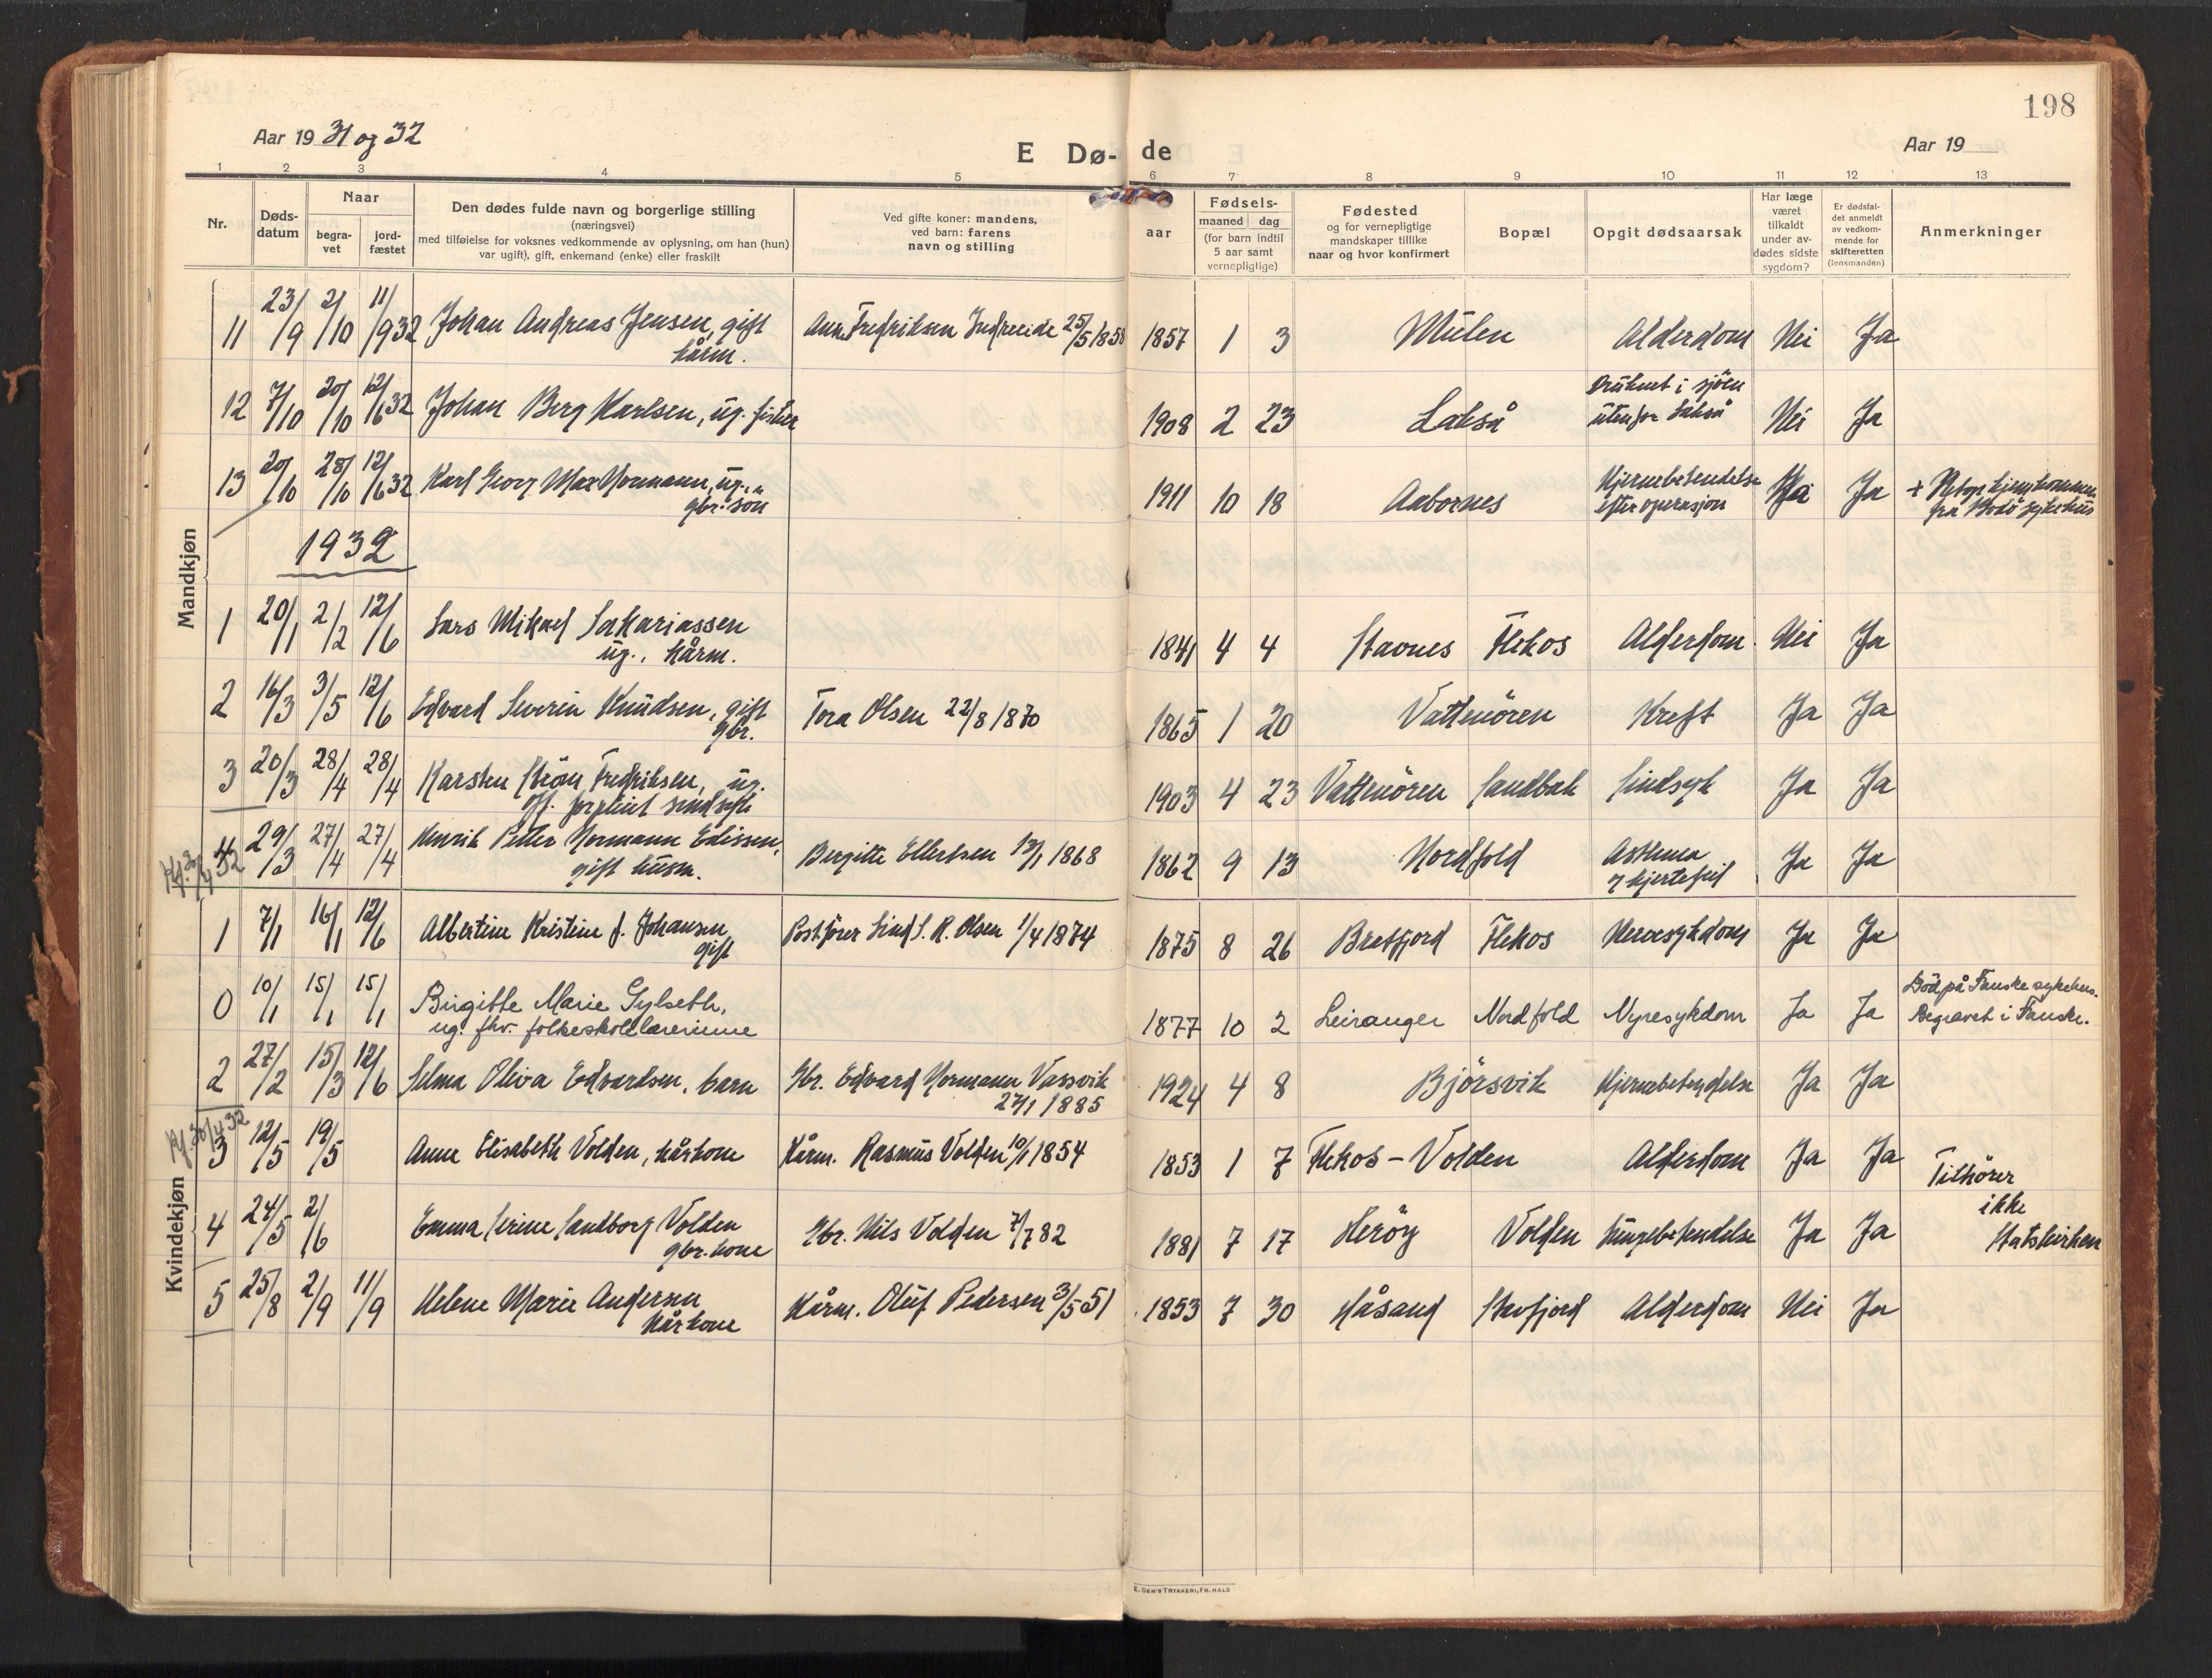 198
Aar 19 31 og 32
E Dø- de
Aar 19
1 2 3 4 5 6 7 8 9 10 11 12 13
Nr. Døds-datum Naar begra-vet jord-fæstet
Den dødes fulde navn og borgerlige stilling
(næringsvei)
med tilføielse for voksnes vedkommende av oplysning, om han (hun)
var ugift), gift, enkemand (enke) eller fraskilt
Ved gifte koner: mandens,
ved barn: farens
navn og stilling
Fødsels-
aar maaned dag
(for barn indtil
5 aar samt
vernepligtige)
Fødested
og for vernepligtige
mandskaper tillike
naar og hvor konfirmert
Bopæl
Opgit dødsaarsak
Har læge
været
tilkaldt
under av-
dødes sidste
sygdom?
Er dødsfal-
det anmeldt
av vedkom-
mende for
skifteretten
(lensmanden)
Anmerkninger
Mandkjøn
11 23/9 2/10 11/9 32 Johan Andreas Jensen, gift Anne Fredriksen Indreeide 25/5 1858 1857 1 3 Mulen Alderdom Nei Ja
kårm.
12 7/10 20/10 12/6 32 Johan Berg Karlsen, ug. fisker 1908 2 23 Lakså Druknet i sjöen Nei Ja
utenfor Lakså
13 20/10 28/10 12/6 32 Karl Georg Max Normann, ug., 1911 10 18 Aabornes Hjernebetendelse Ja Ja + Netop hjemkommen
gbr. sön efter operasjon fra Bodö sykehus
1932
1 20/1 2/2 12/6 Lars Mikael Sakariassen 1841 4 4 Stavnes Flekos Alderdom. Nei Ja
ug., kårm.
2 16/3 3/5 12/6 Edvard Severin Knudsen, gift Tora Olsen 22/8 1870 1865 1 20 Vattenören Kreft Ja Ja
gbr.
3 20/3 28/4 28/4 Karsten Ström Fredriksen, ug. 1903 4 23 Vattenören Sandbak Sindsyk Ja Ja
off. forpleiet sindssyk
4 29/3 27/4 27/4 Henrik Petter Normann Edissen, Bergitte Ellertsen 13/1 1868 1862 9 13 Nordfold Asthma Ja Ja
gift husm. og hjertefeil
Kvindekjøn
1 7/1 16/1 12/6 Albertine Kristine f. Johansen Postförer Sind S. R. Olsen 1/4 1874 1875 8 26 Bretfjord Flekos Nervesykdom Ja Ja
gift
0 10/1 15/1 15/1 Birgitte Marie Gylseth, 1877 10 2 Leiranger Nordfold Nyresykdom Ja Ja Död på Fauske sykehus.
ug. fhv. folkeskolelærerinne Begravet i Fauske.
2 27/2 15/3 12/6 Selma Oliva Edvardsen, barn Gbr. Edvard Normann Vassvik 1924 4 8 Björsvik Hjernebetendelse Ja Ja
27/1 1885
3 12/5 19/5 Anne Elisabeth Volden, kårkone Kårm. Rasmus Volden 10/1 1854 1853 1 7 Flekos - Volden Alderdom Ja Ja
4 24/5 2/6 Emma Serine Sandborg Volden Gbr. Nils Volden 7/7 82 1881 7 17 Heröy Volden Lungebetendelse Ja Ja Tilhörer
gbr. kone ikke
Statskirken
5 25/8 2/9 11/9 Helene Marie Andersen Kårm. Oluf Pedersen 3/5 51 1853 7 30 Måsand Stavfjord Alderdom Nei Ja
kårkone
E. SEM'S TRYKKERI, FR.HALD